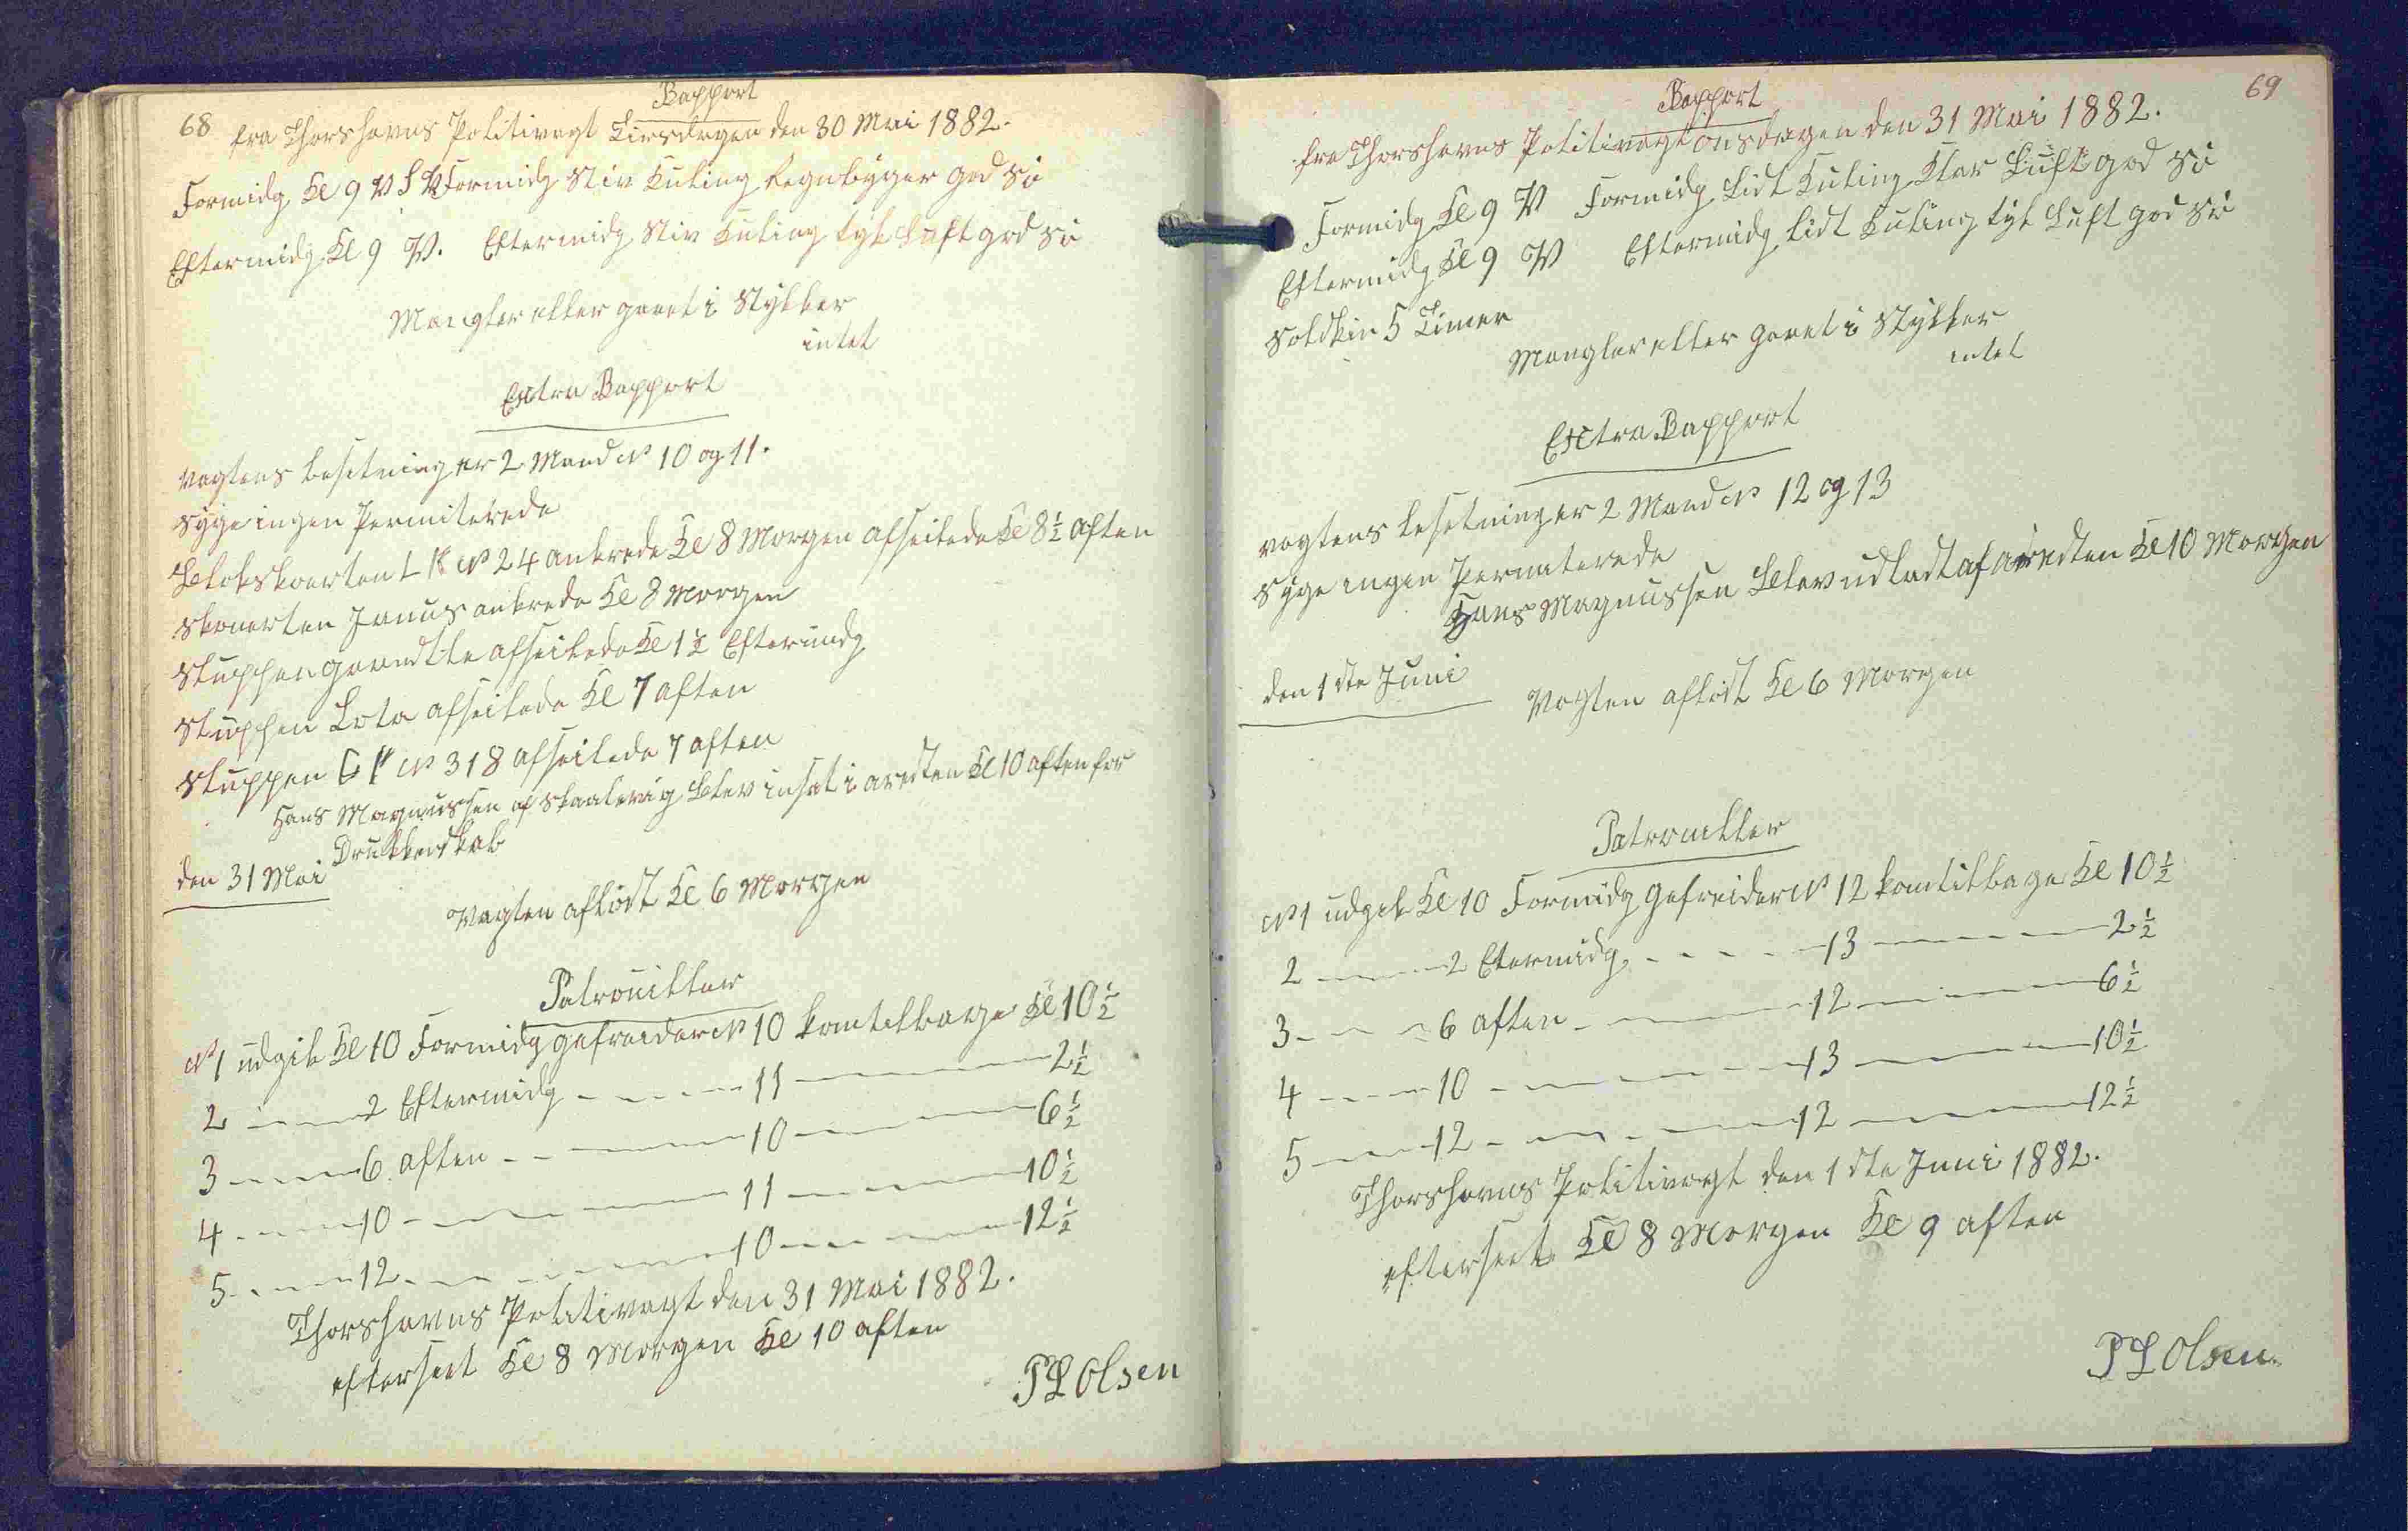 68
Rapport
fra Thorshavns Politivagt Tirsdagen den 30 Mai 1882.
Formidg Kl 9 V S V Formidg Stiv Kuling Regnbyger god Sö
Eftermidg Kl 9 V. Eftermidg Stiv Kuling tyk Luft god Sö
Mangler eller gaaet i Stykker
intet
Extra Rapport
Vagtens besetning er 2 Mand No 10 og 11.
Syge ingen Permiterede
Slobskoerten L K No 24 ankrede Kl 8 Morgen afseilede Kl 8½ Aften
Skonerten Janus ankrede Kl 8 Morgen
Sluppen afseilede Kl 1½ Eftermidg
Sluppen Lota afseilede Kl 7 aften
Sluppen G K No 318 afseilede 7 aften
Hans Magnussen af Skaalevig Blev insat i aresten Kl 10 aften for
Drukkenskab
den 31 Mai
Vagten aflöst Kl 6 Morgen
Patrouiller
No 1 udgik Kl 10 Formidg gefreider No 10 kom tilbage Kl 10½
2 — 2 Eftermidg — 11 — 2½
3 — 6 aften — 10 — 6½
4 — 10 — 11 — 10½
5 — 12 — 10 — 12½
Thorshavns Politivagt den 31 Mai 1882.
efterseet Kl 8 Morgen Kl 10 aften
P L Olsen
69
Rapport
fra Thorshavns Politivagt onsdagen den 31 Mai 1882.
Formidg Kl 9 V Formidg Lidt Kuling Klar Luft god Sö
Eftermidg Kl 9 V Eftermidg lidt Kuling tyk Luft god Sö
Solskin 5 Timer
Mangler eller gaaet i Stykker
intet
Extra Rapport
Vagtens besetning er 2 Mand No 12 og 13
Syge ingen Permiterede
Hans Magnussen Blev udladt af aresten Kl 10 Morgen
den 1ste Juni
Vagten aflöst Kl 6 Morgen
Patrouiller
No 1 udgik Kl 10 Formidg gefreider No 12 kom tilbage Kl 10½
2 — 2 Etermidg — 13 — 2½
3 — 6 aften — 12 — 6½
4 — 10 — 13 — 10½
5 — 12 — 12 — 12½
Thorshavns Politivagt den 1ste Juni 1882.
efterseet Kl 8 Morgen Kl 9 aften
P L Olsen